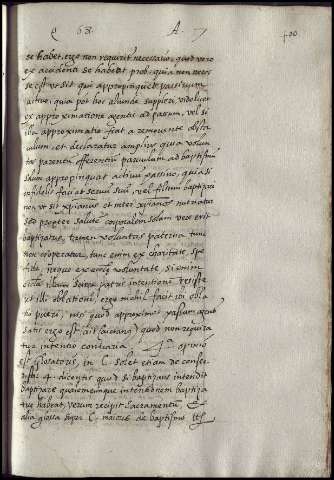 q 63. A. 7 400
se habet, ergo non requirit necessario, quod vero
ex accidenti se habeat prob. quia non neces
se est ut sit qui appropinquet passivum
activo, quia pot hoc aliunde suppleri videlicet
ex approximatione agentis ad passum, vel si
illa approximatio fiat a removente obsta
culum, et declaratur amplius quia volun
tas parentis offerentis parvulum ad baptismum
solum appropinquat activum passivo, quia si
infidelis faciat servum suum vel filium baptizari
non ut sit xpianus et inter xpianos nutriatur
sed propter salutem corporalem solam vere erit
baptizatus, tamen voluntas paterna tunc
non cooperatur tunc enim ex charitate, spe
fide, neque ex eius voluntate, si enim
illum secus patris intentione
ut illi oblationi, ergo nihil facit in obla
ne pueri, nisi quod approximet passum agenti
satis ergo est ait quod non requira
tur intentio contraria 4ª opinio
est glosatoris, in C. solet etiam de conse
dist. 4 dicentis quod si baptizans intendit
baptizare quamcumque intentionem baptiza
tus habeat, verum recipit sacramentum, Et
alia glossa super C. maiores de baptismo